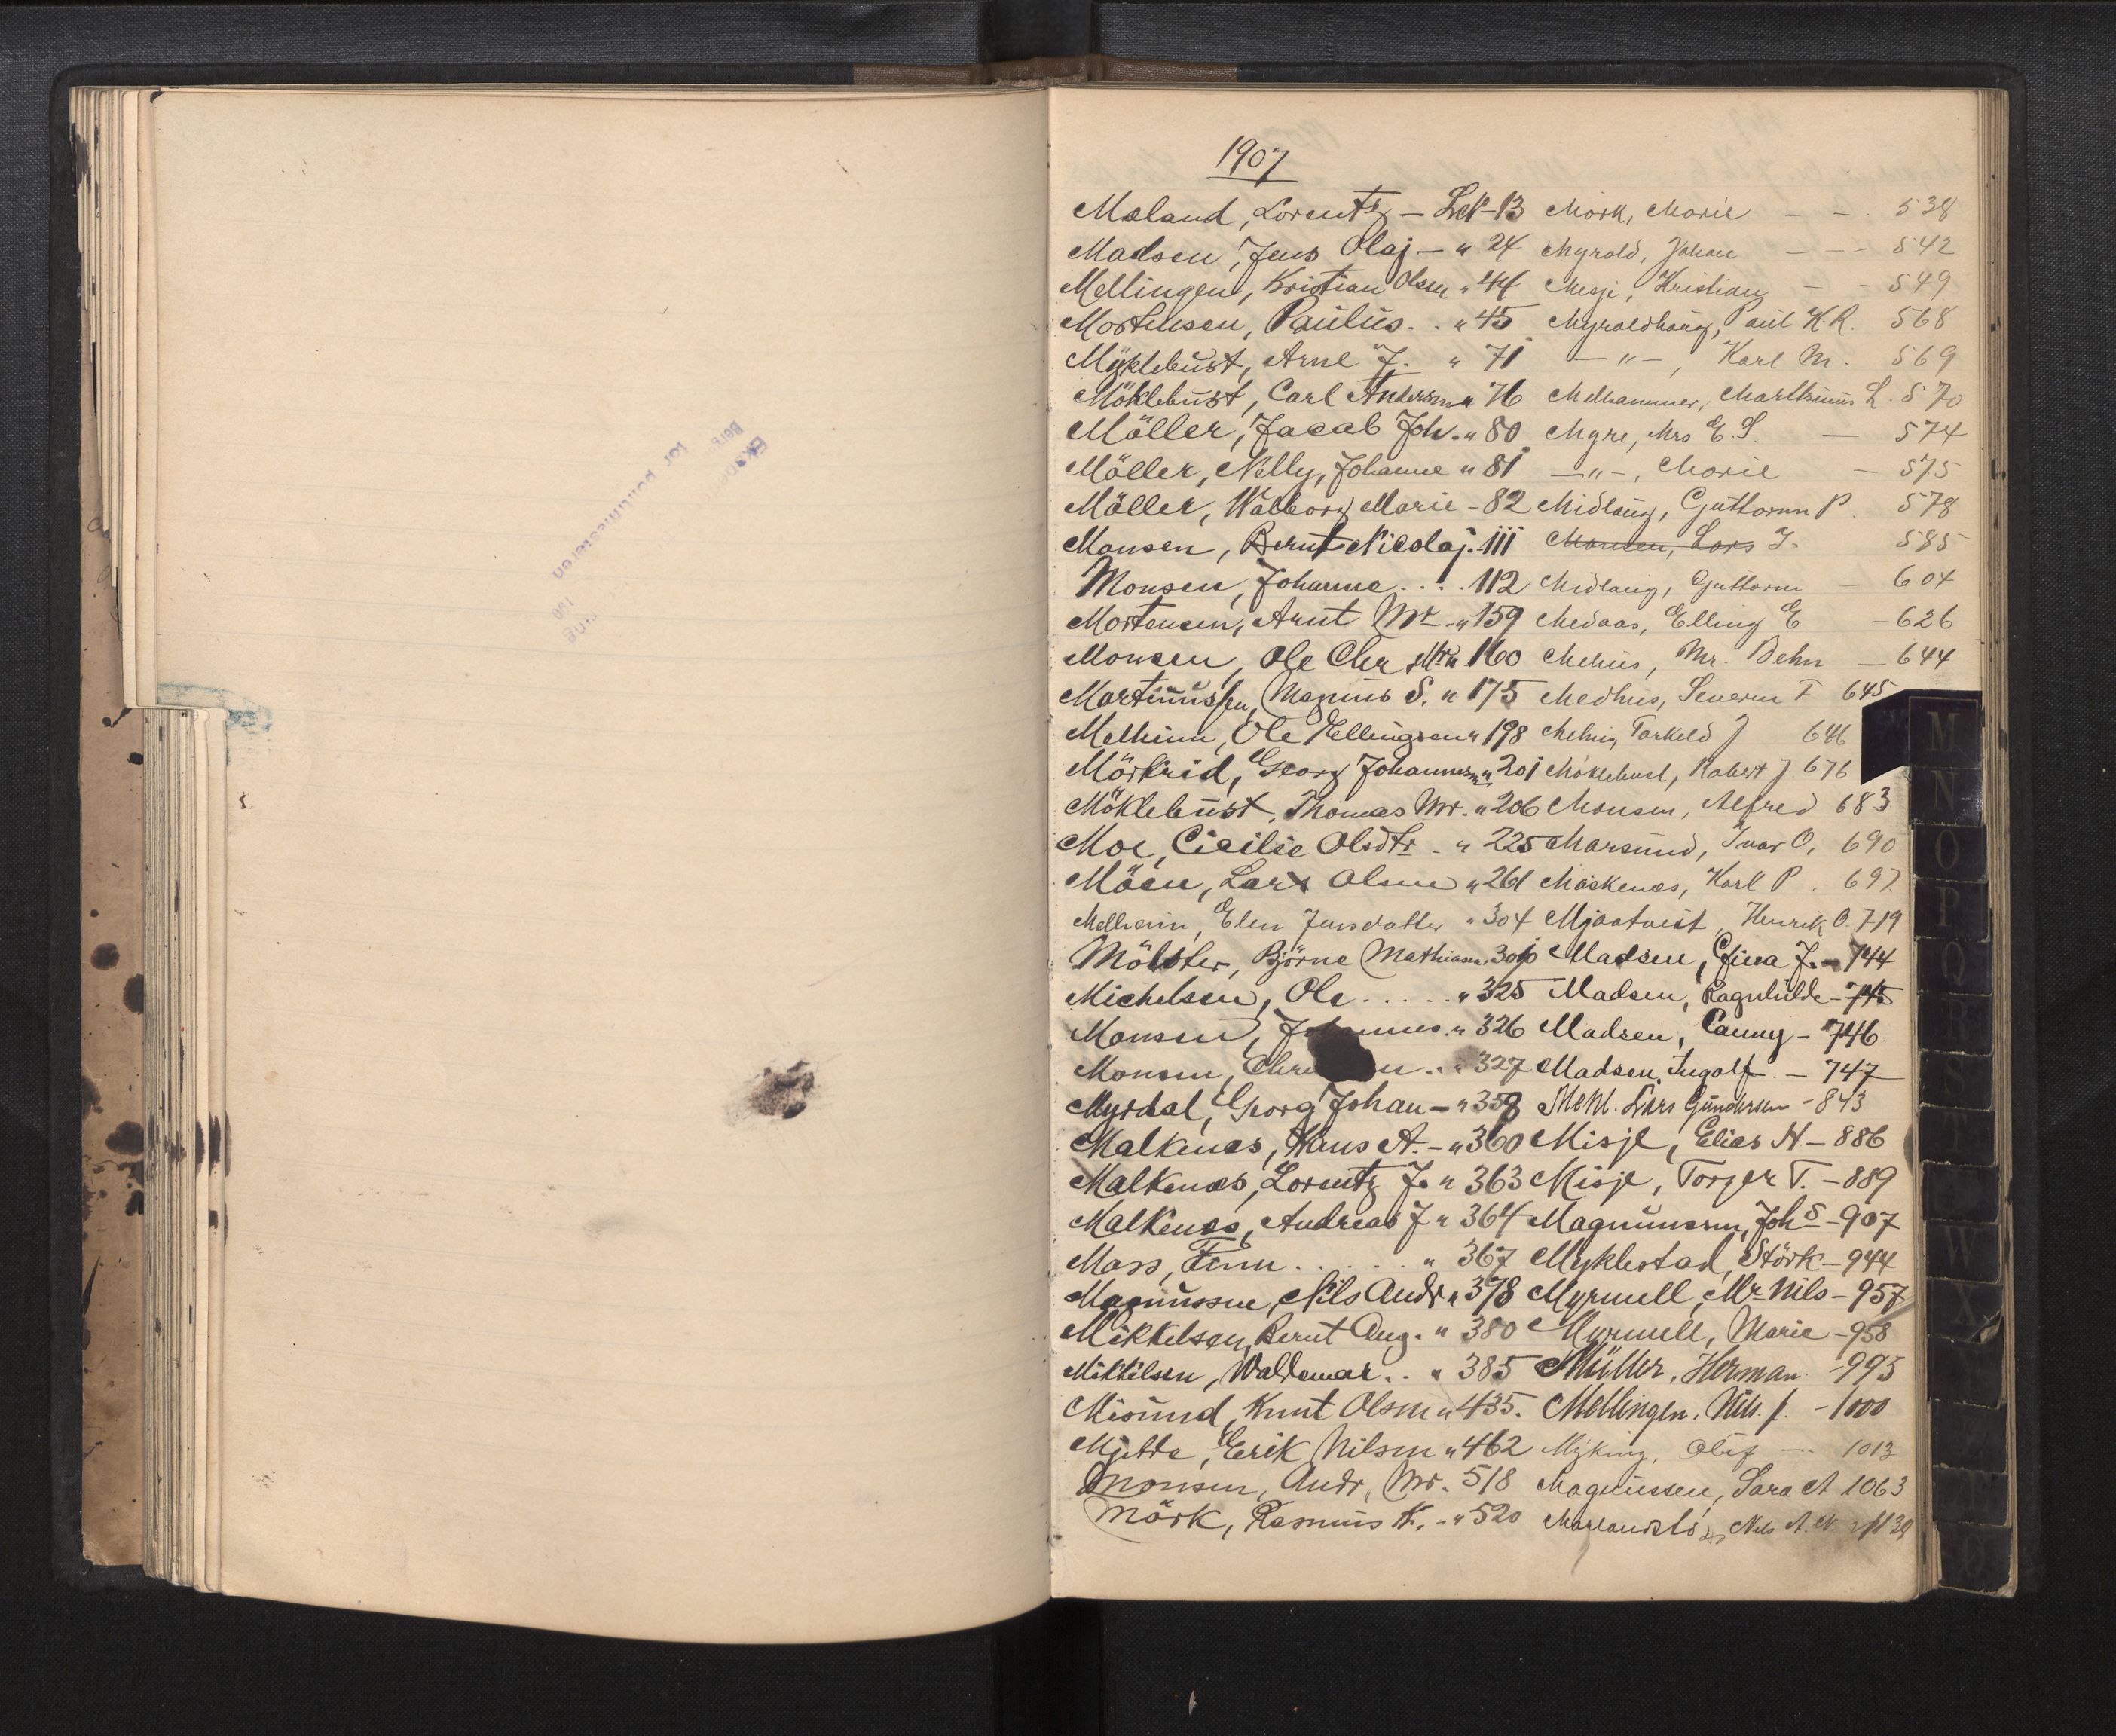 1907
Mæland, Lorentz – 13 Mørk, Marie – – 538
Madsen, Jens Olaj – " 24 Myrold, Johan – – – 542
Mellingen, Kristian Olsen " 44 Misje, Kristian – – 549
Mortensen, Paulus. . " 45 Myroldhaug, Paul K.R. 568
Myklebust, Arne J. " 71 – " –, Karl M. 569
Möklebust, Carl Andersen " 76 Melhammer, Marthinius L. 570
Möller, Jacob Joh. " 80 Myre, Mrs E. S. – 574
Möller, Nelly, Johanne " 81 – " –, Marie – 575
Möller, Walborg Marie – 82 Midlaug, Guttorm P. 578
Monsen, Bernt Nicolaj. 111 Monsen, Lars J. 585
Monsen, Johanne . . . . 112 Midlaug, Guttorm – 604
Mortensen, Arnt Mr. " 159 Medaas, Elling E – 626
Monsen, Ole Chr. Mr. " 160 Mehus, Mr. Behn – 644
Martinussen, Magnus S. " 175 Medhus, Severin T 645
Melheim, Ole Ellingsen " 198 Mehus, Torkeld J 646
Mörkrid, Georg Johannesen " 201 Möklebust, Robert J. 676
Möklebust, Thomas Mr. " 206 Monsen, Alfred 683
Moe, Cicilie Olsdtr. " 225 Marsund, Ivar O, 690
Möen, Lars Olsen " 261 Maskenæs, Karl P. 697
Melheim, Elen Jensdatter " 304 Mjaatveit, Henrik O. 719
Mölster, Björne Mathiasen 306 Madsen, Gina J. – 744
Michelsen, Ole . . . . . " 325 Madsen, Ragnhilde – 745
Monsen, Johannes. " 326 Madsen, Canny – 746
Monsen, 327 Madsen, Ingolf. – 747
Myrdal, Georg Johan – " 358 Mehl. Lars Gundersen – 843
Malkenæs, Hans A. – " 360 Misje, Elias N – 886
Malkenæs, Lorentz J. " 363 Misje, Torger T. – 889
Malkenæs, Andreas J " 364 Magnussen, Joh S – 907
Moss, Finn . . . . . " 367 Myklestad, Störk – 944
Magnussen, Nils Andr " 378 Myrmell, Mr Nils – 957
Mikkelsen, Bernt Aug. " 380 Myrmell, Marie – 958
Mikkelsen, Waldemar. . " 385 Müller, Herman. – 995
Misund, Knut Olsen " 435. Mellingen. Nils. J. – 1000
Mjelde, Erik Nilsen " 462 Myking, Oluf – 1013
Monsen, Andr, Mr. 518 Magnussen, Sara A 1063
Mörk, Rasmus K. – " 520 Nils A. N.